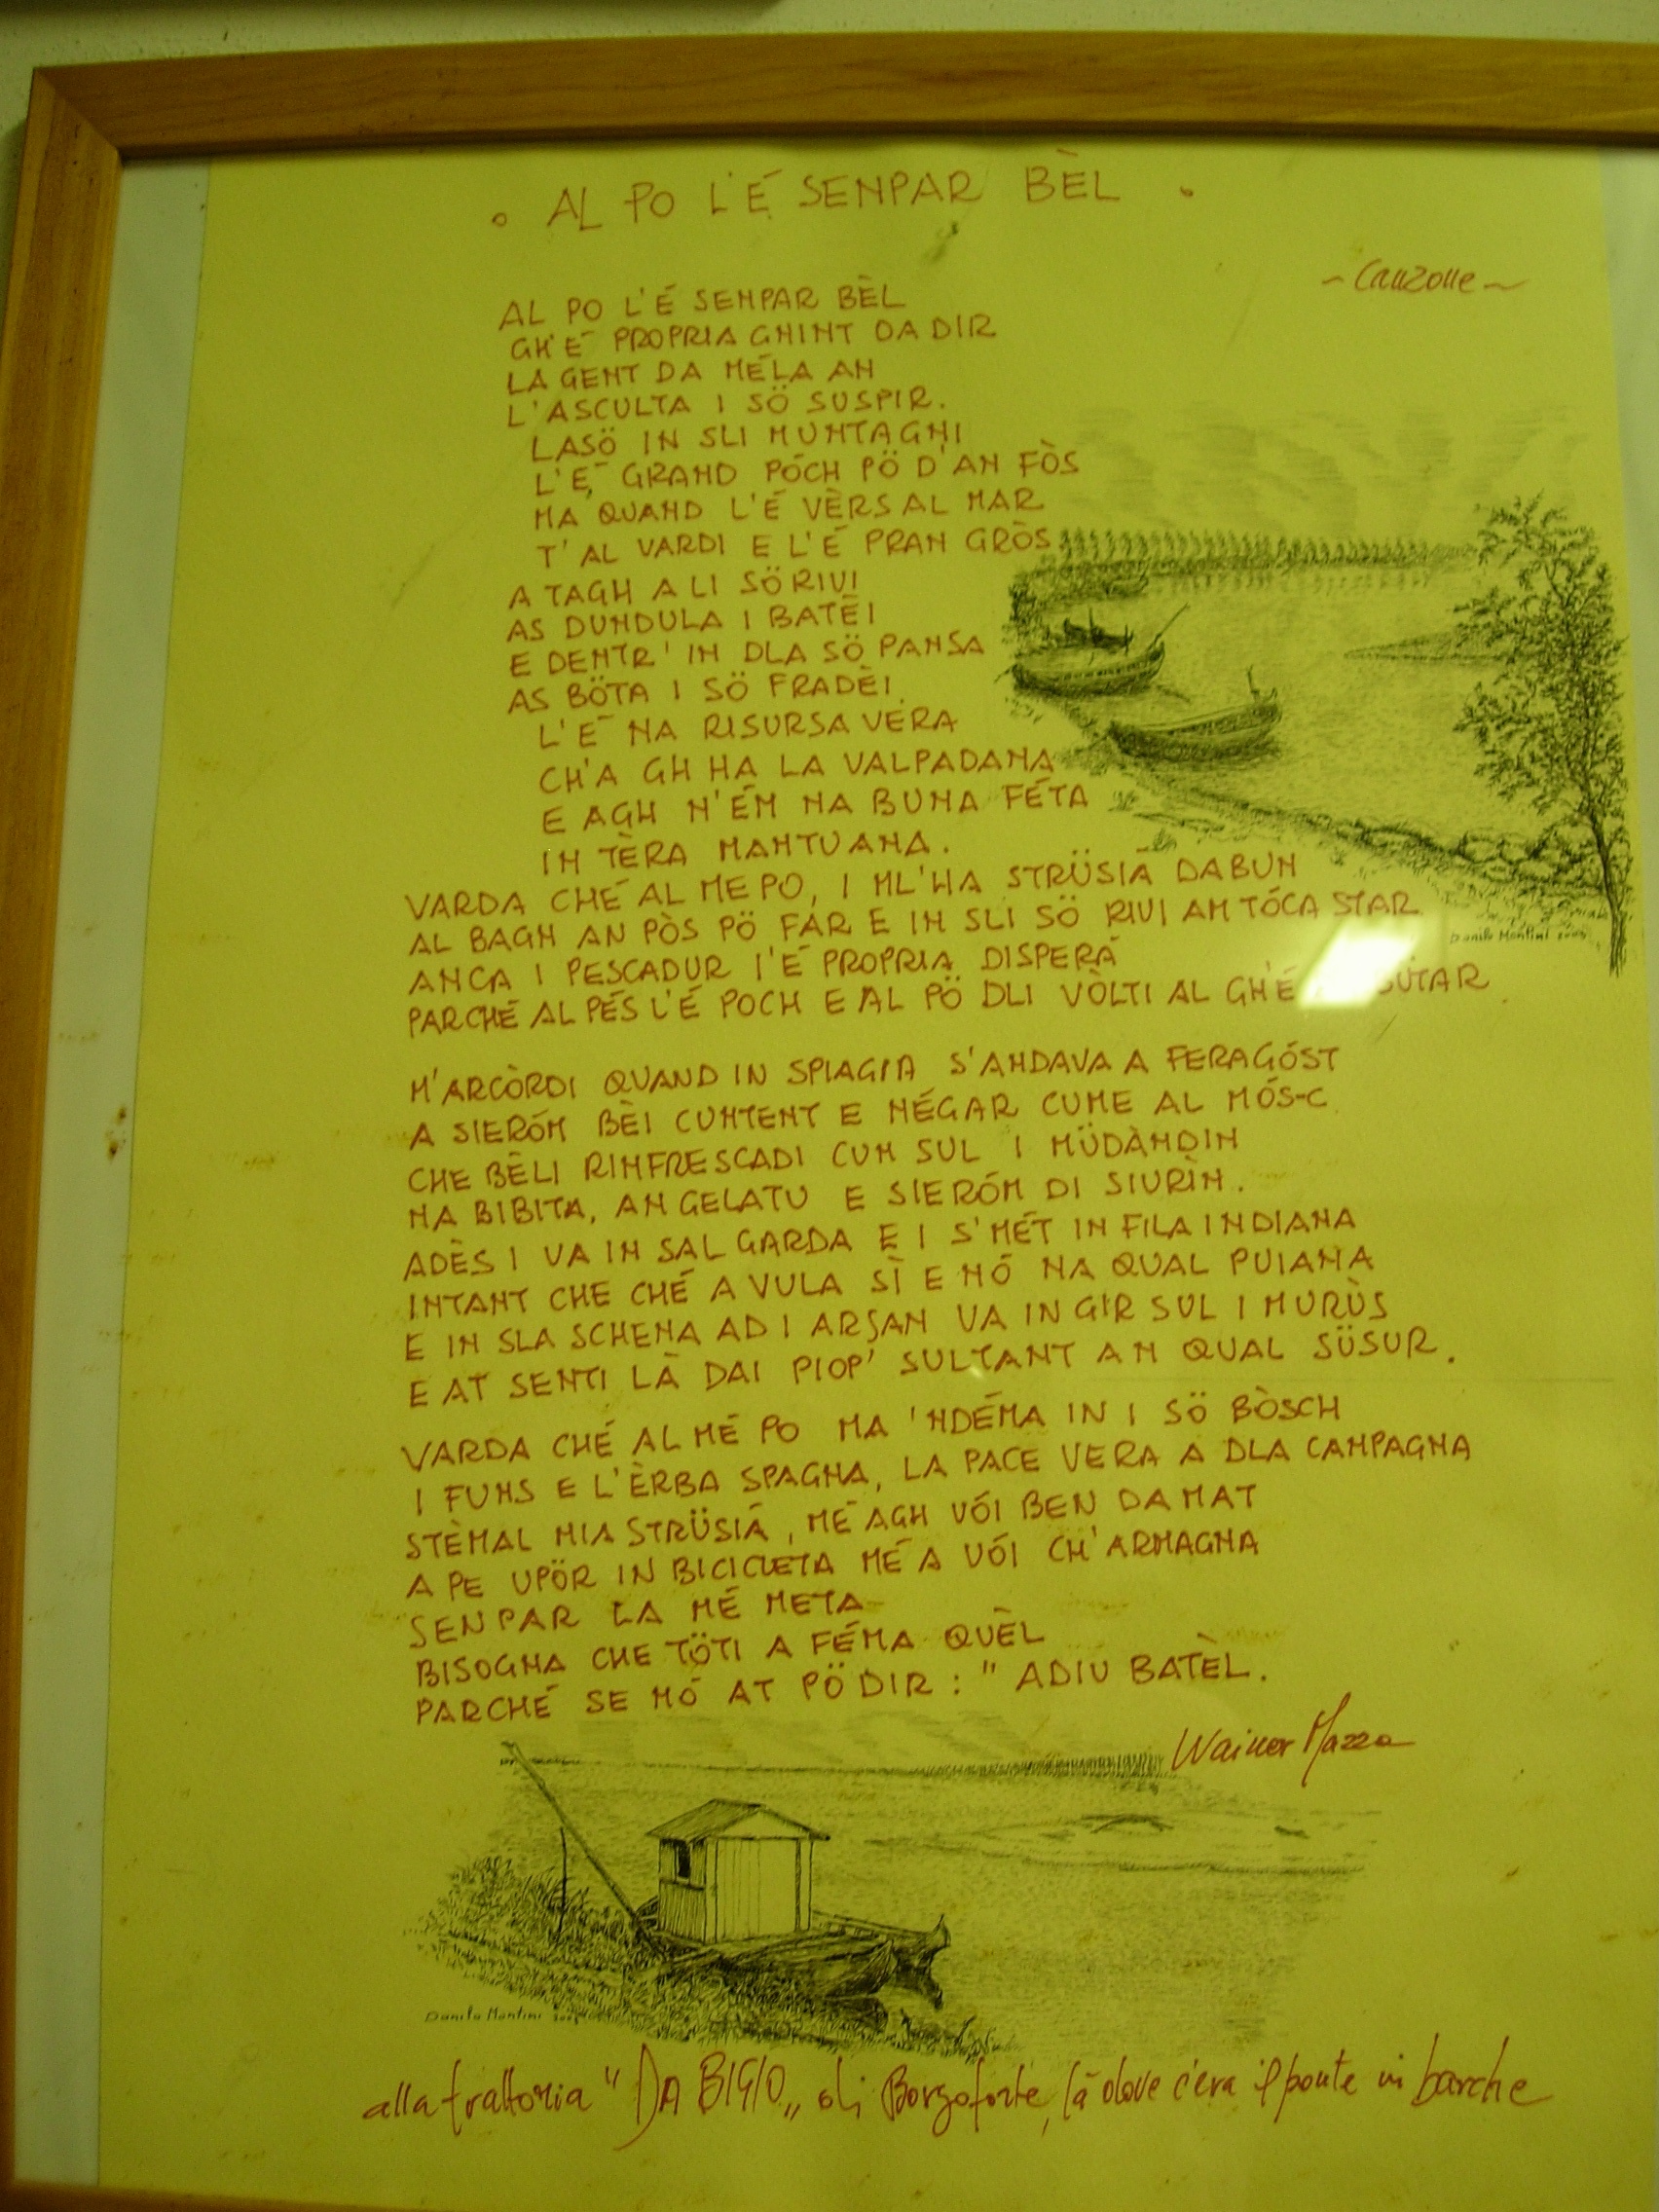 . AL PO L'É SENPAR BÈL .
~ Canzone ~
AL PO L'É SENPAR BÈL
GH'É PROPRIA GNINT DA DIR
LA GENT DA MÉLA AN
L'ASCULTA I SÖ SUSPIR.
LASÖ IN SLI MUNTAGNI
L'É GRAND PÓCH PÖ D'AN FÒS
MA QUAND L'É VÈRS AL MAR
T'AL VARDI E L'É PRAN GRÒS
A TAGH A LI SÖ RIVI
AS DUNDULA I BATÈI
E DENTR' IN DLA SÖ PANSA
AS BÖTA I SÖ FRADÈI
L'É NA RISURSA VÉRA
CH'A GH HA LA VALPADANA
E AGH N'ÉM NA BUNA FÉTA
IN TÈRA MANTUANA.
VARDA CHÉ AL ME PO, I ML'HA STRÜSIÁ DABUN
AL BAGN AN PÒS PÖ FAR E IN SLI SÖ RIVI AM TÓCA STAR
ANCA I PESCADUR I'É PROPRIA DISPERÁ
PARCHÉ AL PÉS L'É POCH E AL PÖ DLI VÒLTI AL GH'É
Danilo Montini
M'ARCÒRDI QUAND IN SPIAGIA S'ANDAVA A FERAGÓST
A SIERÓM BÈI CUNTENT E NÉGAR CUME AL MÓS-C
CHE BÈLI RINFRESCADI CUN SUL I MÜDÀNDIN
NA BIBITA, AN GELATU E SIERÓM DI SIURÌN.
ADÈS I VA IN SAL GARDA E I S'MÉT IN FILA INDIANA
INTANT CHE CHÉ A VULA SÌ E NÓ NA QUAL PUIANA
E IN SLA SCHENA AD I ARSAN VA IN GIR SUL I MURÙS
E AT SENTI LÀ DAI PIOP' SULTANT AN QUAL SÜSUR.
VARDA CHÉ AL MÉ PO MA 'NDÉMA IN I SÖ BÒSCH
I FUNS E L'ÈRBA SPAGNA, LA PACE VERA A DLA CAMPAGNA
STÈMAL MIA STRÜSIÁ, MÉ AGH VÓI BEN DA MAT
A PE UPÖR IN BICICLETA MÉ A VÓI CH'ARMAGNA
SENPAR LA MÉ META
BISOGNA CHE TÖTI A FÉMA QUÈL
PARCHÉ SE NÓ AT PÖ DIR : " ADIU BATÈL.
Wainer Mazza
Danilo Montini
alla trattoria "DA BIGIO" di Borgoforte, là dove c'era il ponte in barche